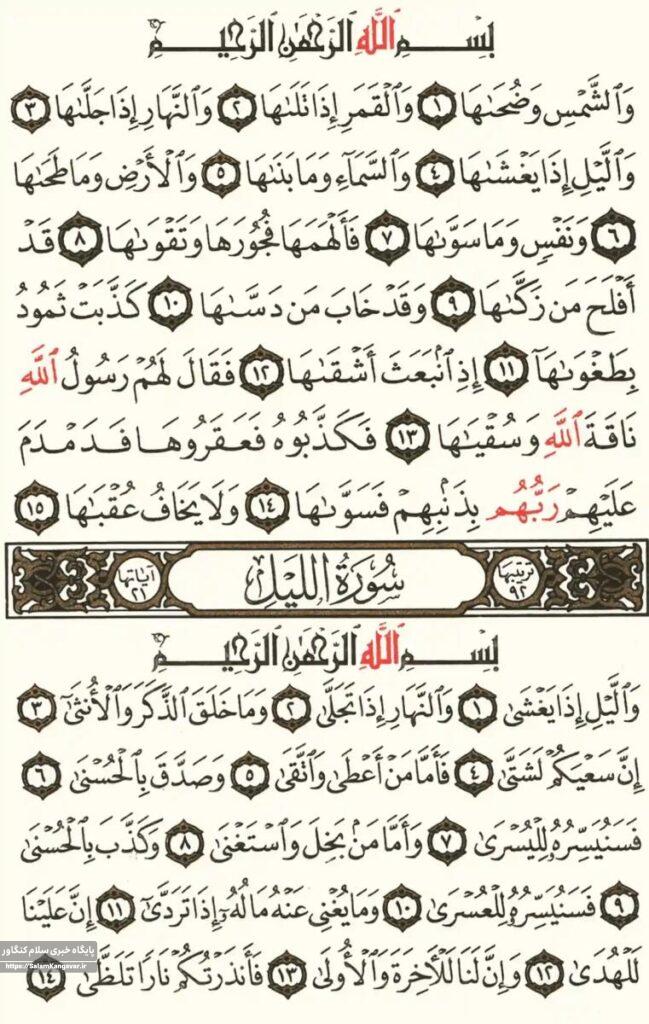 بِسْمِ ٱللَّهِ ٱلرَّحْمَٰنِ ٱلرَّحِيمِ
وَٱلشَّمْسِ وَضُحَىٰهَا ١ وَٱلْقَمَرِ إِذَا تَلَىٰهَا ٢ وَٱلنَّهَارِ إِذَا جَلَّىٰهَا ٣
وَٱلَّيْلِ إِذَا يَغْشَىٰهَا ٤ وَٱلسَّمَآءِ وَمَا بَنَىٰهَا ٥ وَٱلْأَرْضِ وَمَا طَحَىٰهَا
٦ وَنَفْسٍ وَمَا سَوَّىٰهَا ٧ فَأَلْهَمَهَا فُجُورَهَا وَتَقْوَىٰهَا ٨ قَدْ
أَفْلَحَ مَن زَكَّىٰهَا ٩ وَقَدْ خَابَ مَن دَسَّىٰهَا ١٠ كَذَّبَتْ ثَمُودُ
بِطَغْوَىٰهَآ ١١ إِذِ ٱنۢبَعَثَ أَشْقَىٰهَا ١٢ فَقَالَ لَهُمْ رَسُولُ ٱللَّهِ
نَاقَةَ ٱللَّهِ وَسُقْيَٰهَا ١٣ فَكَذَّبُوهُ فَعَقَرُوهَا فَدَمْدَمَ
عَلَيْهِمْ رَبُّهُم بِذَنۢبِهِمْ فَسَوَّىٰهَا ١٤ وَلَا يَخَافُ عُقْبَٰهَا ١٥
ترتيبها ٩٢ سُورَةُ اللَّيْلِ آياتها ٢١
بِسْمِ ٱللَّهِ ٱلرَّحْمَٰنِ ٱلرَّحِيمِ
وَٱلَّيْلِ إِذَا يَغْشَىٰ ١ وَٱلنَّهَارِ إِذَا تَجَلَّىٰ ٢ وَمَا خَلَقَ ٱلذَّكَرَ وَٱلْأُنثَىٰٓ ٣
إِنَّ سَعْيَكُمْ لَشَتَّىٰ ٤ فَأَمَّا مَنْ أَعْطَىٰ وَٱتَّقَىٰ ٥ وَصَدَّقَ بِٱلْحُسْنَىٰ ٦
فَسَنُيَسِّرُهُۥ لِلْيُسْرَىٰ ٧ وَأَمَّا مَنۢ بَخِلَ وَٱسْتَغْنَىٰ ٨ وَكَذَّبَ بِٱلْحُسْنَىٰ
٩ فَسَنُيَسِّرُهُۥ لِلْعُسْرَىٰ ١٠ وَمَا يُغْنِى عَنْهُ مَالُهُۥٓ إِذَا تَرَدَّىٰٓ ١١ إِنَّ عَلَيْنَا
لَلْهُدَىٰ ١٢ وَإِنَّ لَنَا لَلْءَاخِرَةَ وَٱلْأُولَىٰ ١٣ فَأَنذَرْتُكُمْ نَارًا تَلَظَّىٰ ١٤
پایگاه خبری سلام کنگاور
https://SalamKangavar.ir